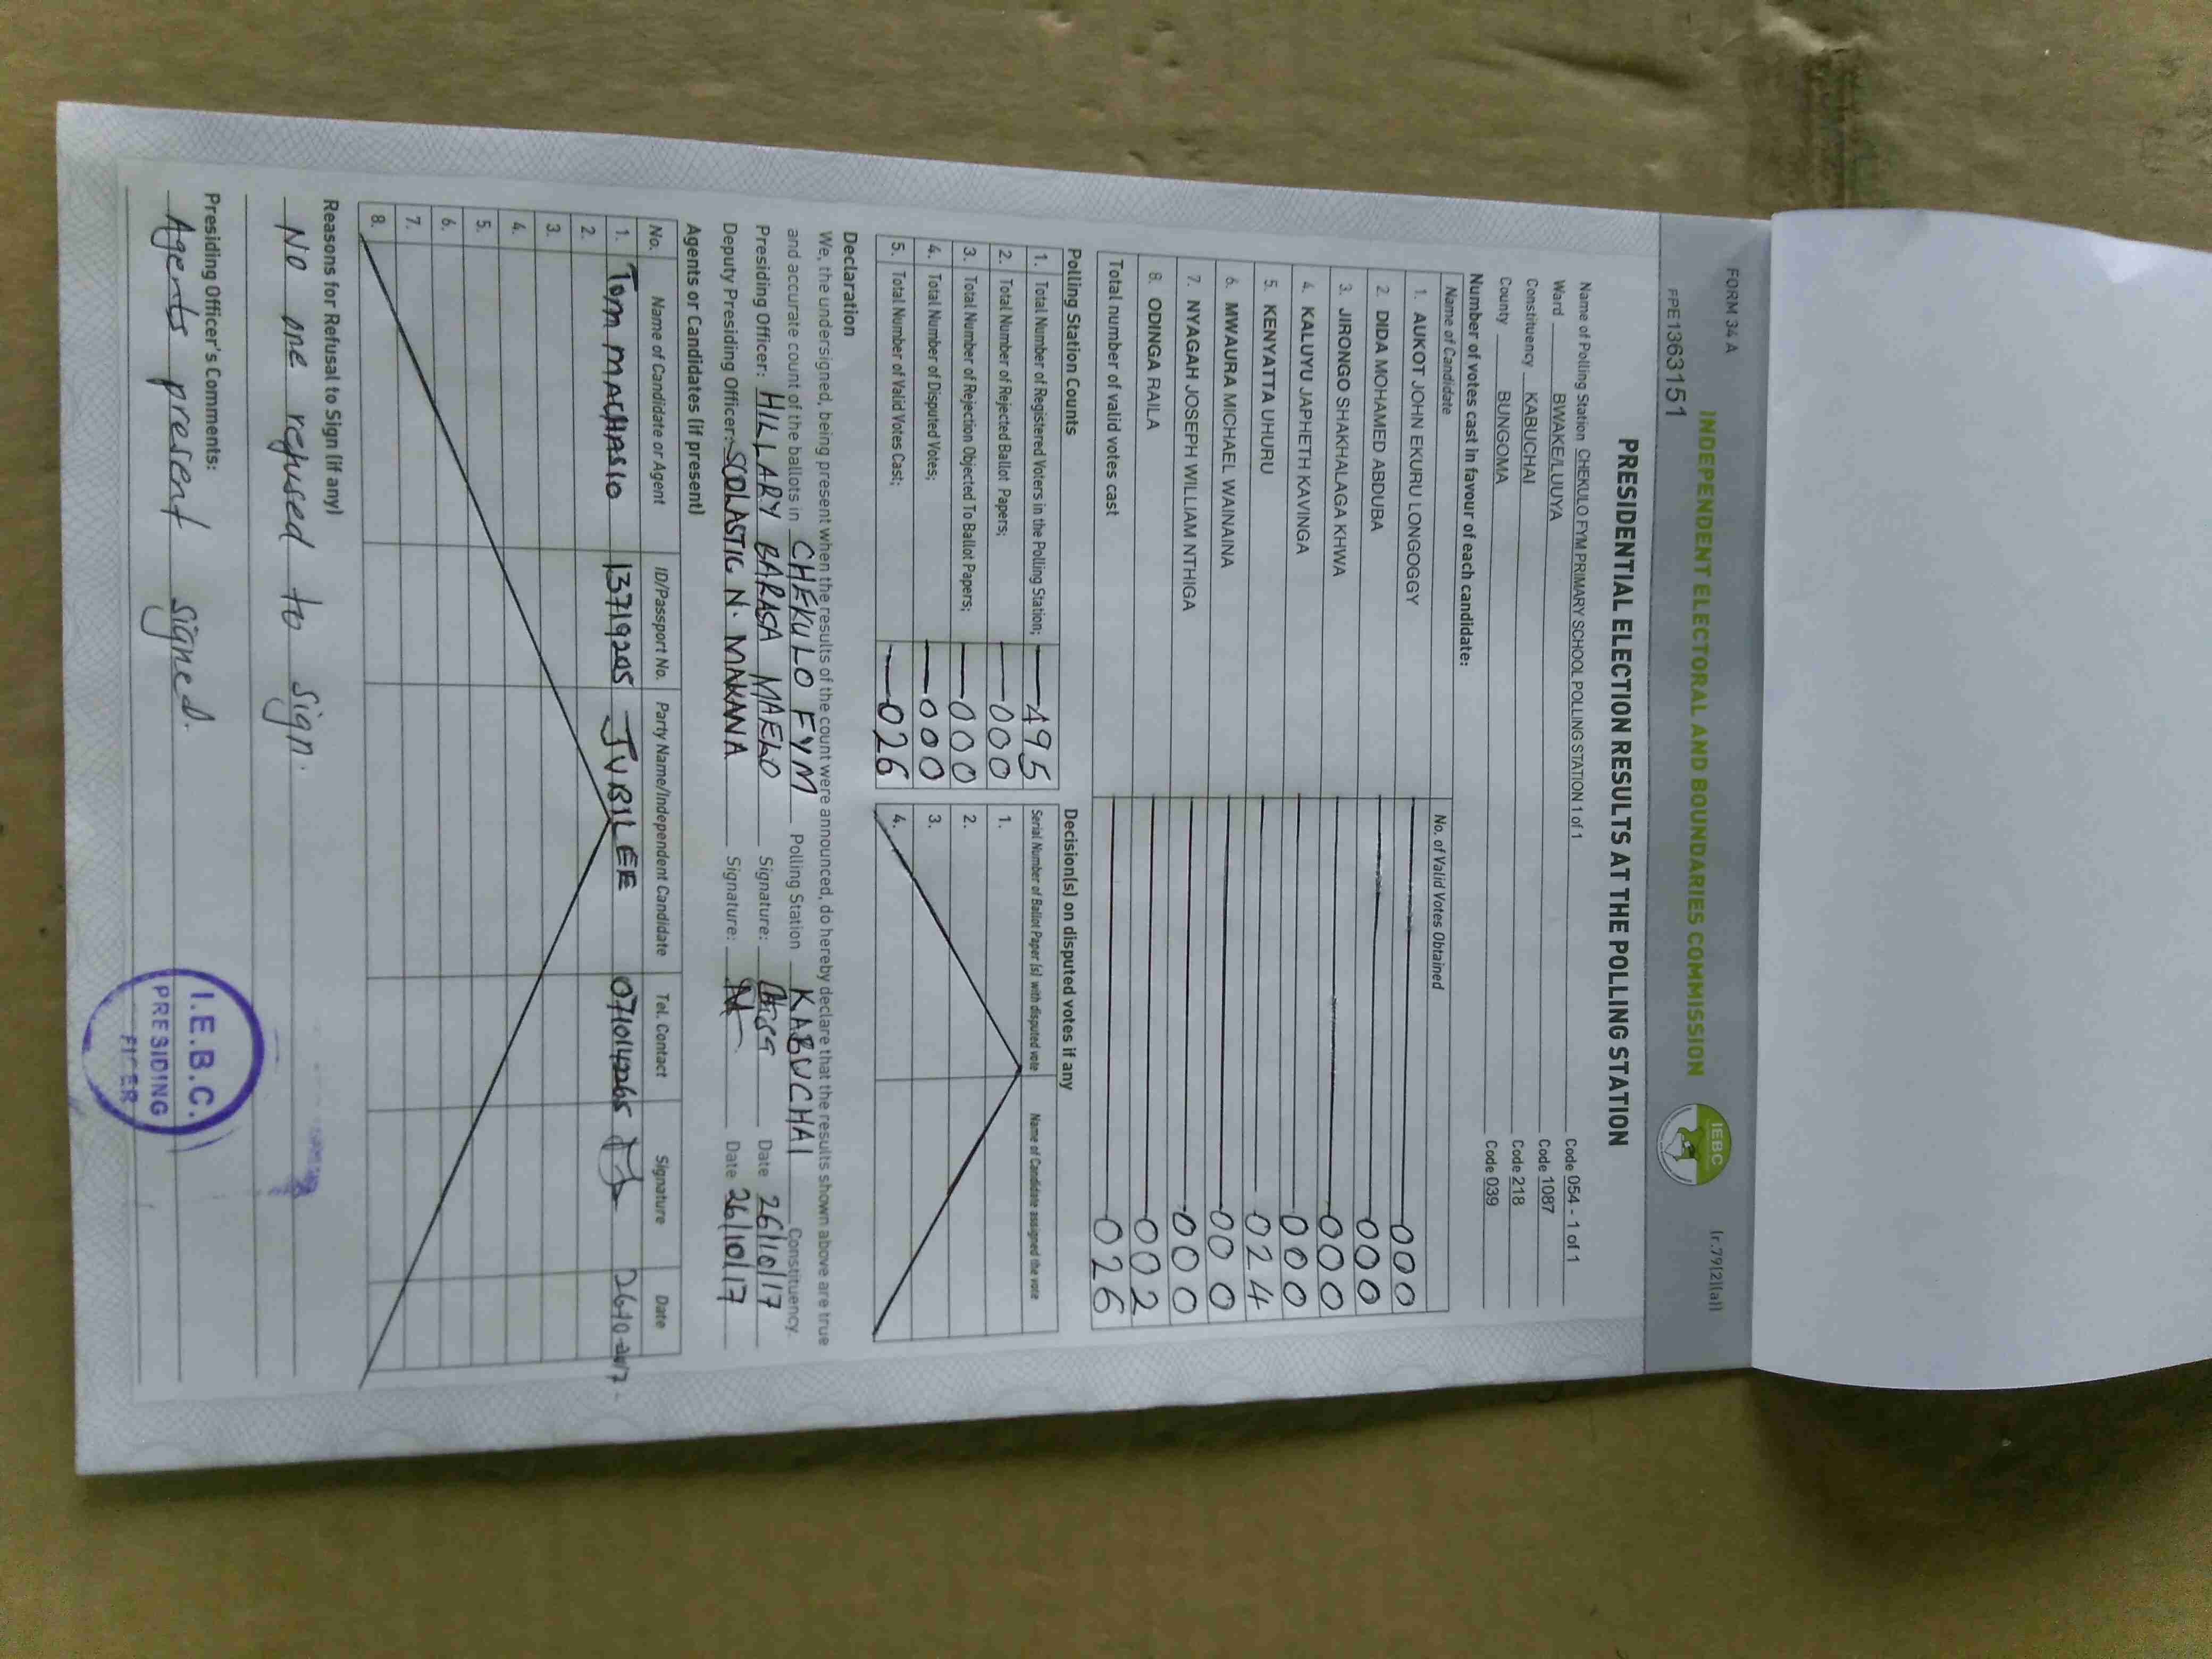 FORM 34 A
(r.79(2)(a))
INDEPENDENT ELECTORAL AND BOUNDARIES COMMISSION
IEBC
PPE1363151
PRESIDENTIAL ELECTION RESULTS AT THE POLLING STATION
Name of Polling Station CHEKULO FYM PRIMARY SCHOOL POLLING STATION 1 of 1 Code 054 - 1 of 1
Ward BWAKE/LUUYA Code 1087
Constituency KABUCHAI Code 218
County BUNGOMA Code 039
Number of votes cast in favour of each candidate:
Name of Candidate No. of Valid Votes Obtained
1. AUKOT JOHN EKURU LONGOGGY 000
2. DIDA MOHAMED ABDUBA 000
3. JIRONGO SHAKHALAGA KHWA 000
4. KALUYU JAPHETH KAVINGA 000
5. KENYATTA UHURU 024
6. MWAURA MICHAEL WAINAINA 000
7. NYAGAH JOSEPH WILLIAM NTHIGA 000
8. ODINGA RAILA 002
Total number of valid votes cast 026
Polling Station Counts
1. Total Number of Registered Voters in the Polling Station; 495
2. Total Number of Rejected Ballot Papers; 000
3. Total Number of Rejection Objected To Ballot Papers; 000
4. Total Number of Disputed Votes; 000
5. Total Number of Valid Votes Cast; 026
Decision(s) on disputed votes if any
Serial Number of Ballot Paper (s) with disputed vote Name of Candidate assigned the vote
1.
2.
3.
4.
Declaration
We, the undersigned, being present when the results of the count were announced, do hereby declare that the results shown above are true
and accurate count of the ballots in CHEKULO FYM Polling Station KABUCHAI Constituency.
Presiding Officer: HILLARY BARASA MAELO Signature: Date 26/10/17
Deputy Presiding Officer: SCOLASTIC N. MAKANA Signature: Date 26/10/17
Agents or Candidates (if present)
No. Name of Candidate or Agent ID/Passport No. Party Name/Independent Candidate Tel. Contact Signature Date
1. Tom MACHASIO 13719205 JUBILEE
2.
3.
4.
5.
6.
7.
8.
Reasons for Refusal to Sign (if any)
No one refused to sign.
Presiding Officer's Comments:
Agents present signed.
I.E.B.C.
PRESIDING